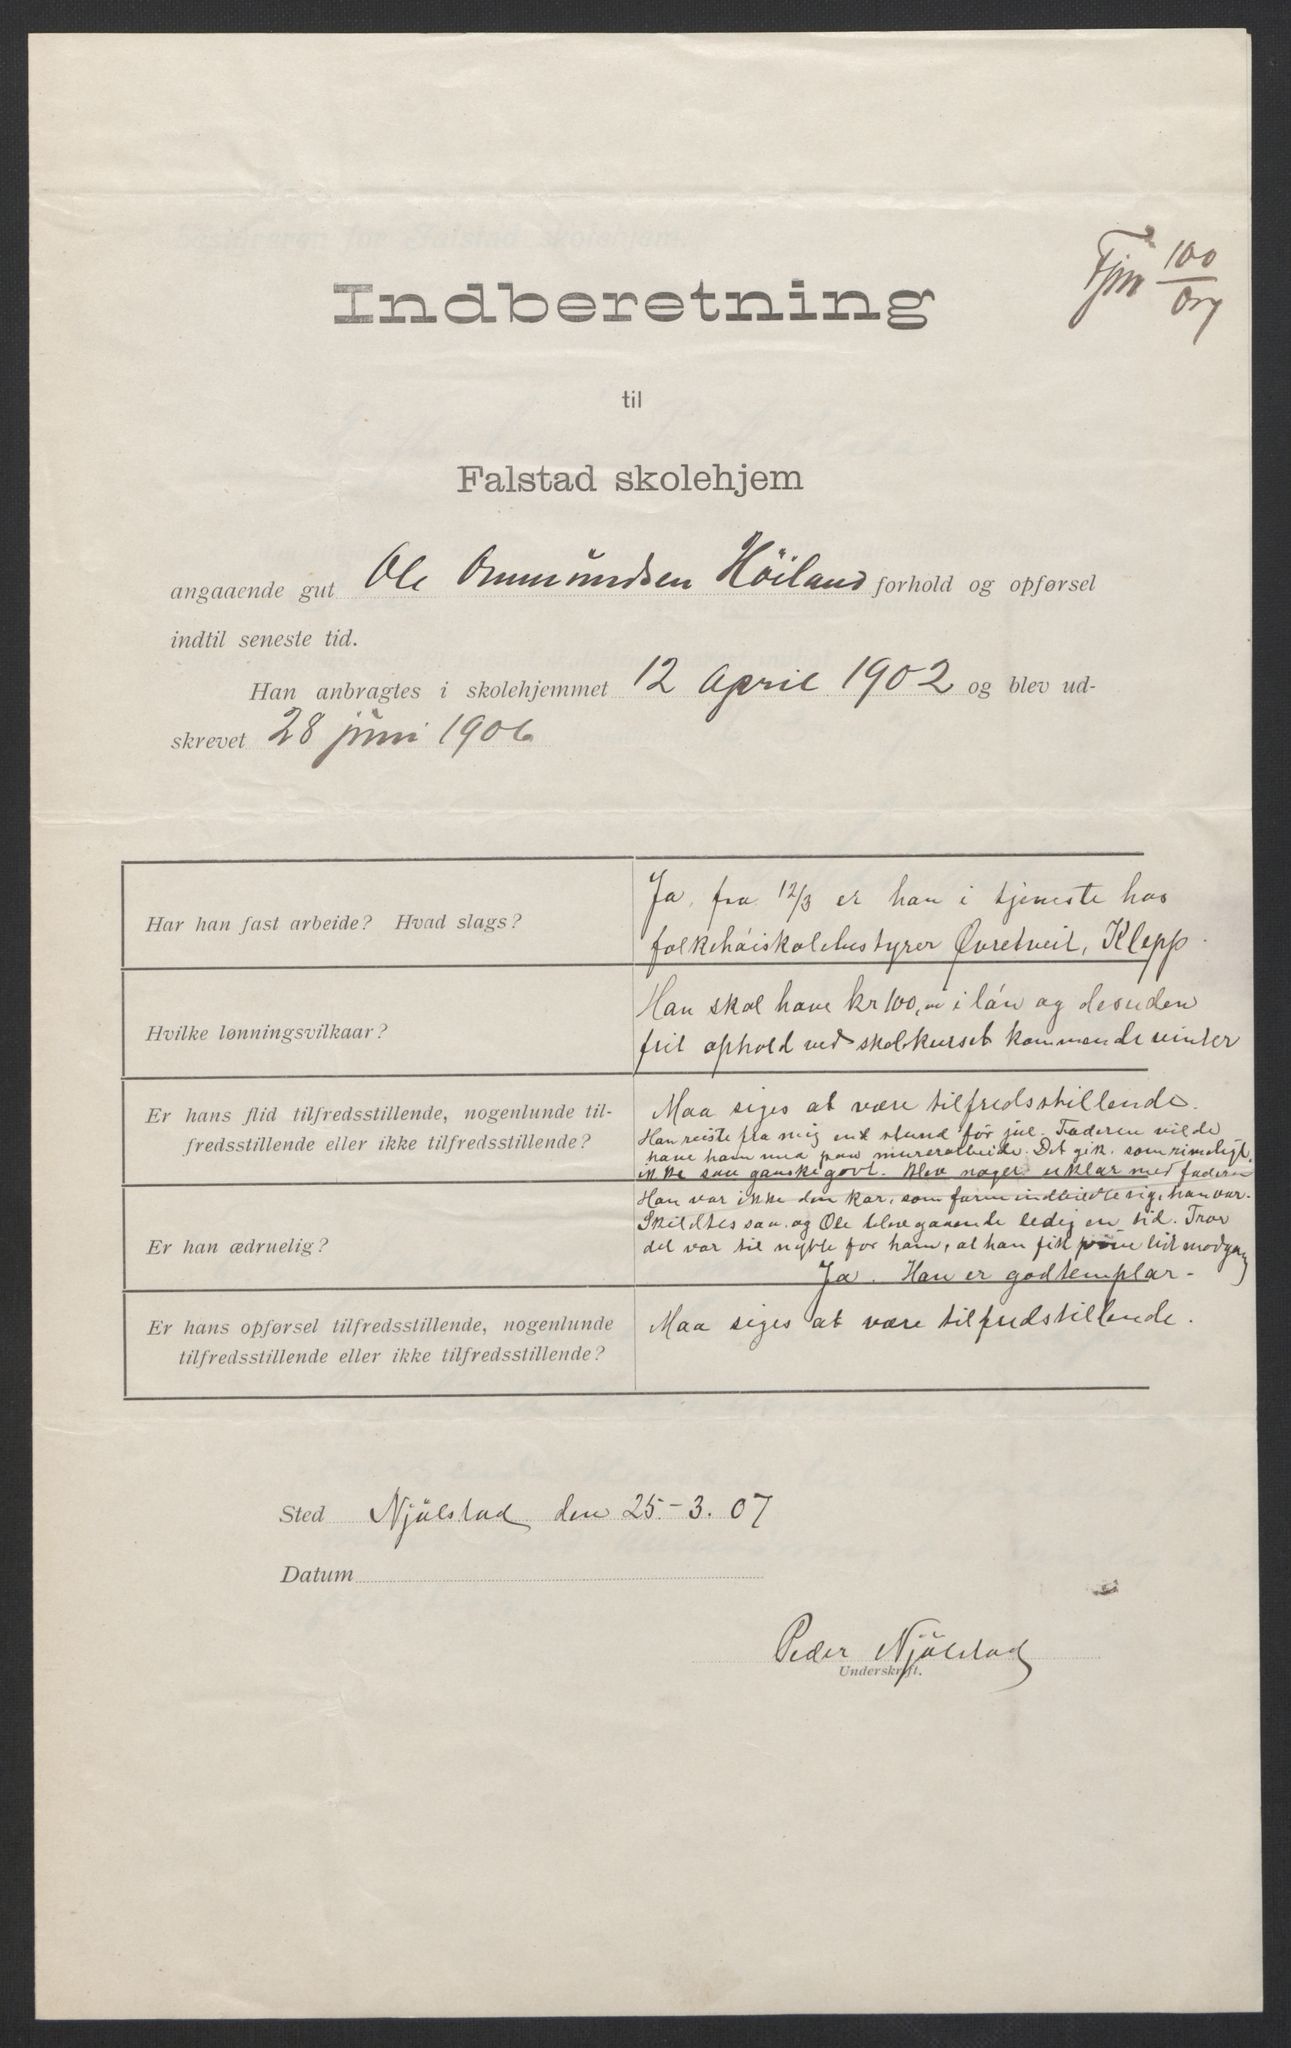 Fjm 100/07
Indberetning
til
Falstad skolehjem
angaaende gut Ole Ommundsen Höiland forhold og opførsel
indtil seneste tid.
Han anbragtes i skolehjemmet 12 april 1902 og blev ud-
skrevet 28 juni 1906
Har han fast arbeide? Hvad slags?
Ja, fra 12/3 er han i tjeneste hos
folkehöiskolebestyrer Øvretveit, Klepp.
Hvilke lønningsvilkaar?
Han skal have kr 100,00 i lön og desuden
frit ophold ved skolekurset kommende vinter
Er hans flid tilfredsstillende, nogenlunde til-
fredsstillende eller ikke tilfredsstillende?
Maa siges at være tilfredsstillende.
Han reiste fra mig en stund før jul. Faderen vilde
have ham med paa murerarbeide. Det gik, som rimeligt,
ikke saa ganske godt. Blev noget uklar med faderen
Er han ædruelig?
Han var ikke den kar, som faren indbildte sig, han var.
Skildtes saa, og Ole blev gaaende ledig en tid. Tror
det var til nytte for ham, at han fik prøve lidt modgang
Ja. Han er godtemplar.
Er hans opførsel tilfredsstillende, nogenlunde
tilfredsstillende eller ikke tilfredsstillende?
Maa siges at være tilfredstillende.
Sted Njålstad den 25-3.07
Datum
Peder Njålstad
Underskrift.